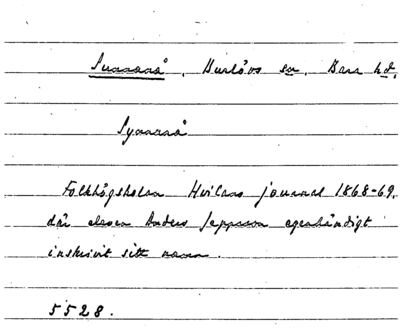 Sunnanå, Burlövs sn, Bara hd.
Synnanå
Folkhögskolan Hvilans journal 1868-69.
där eleven Anders Jeppsson egenhändigt
inskrivit sitt namn.
5528.